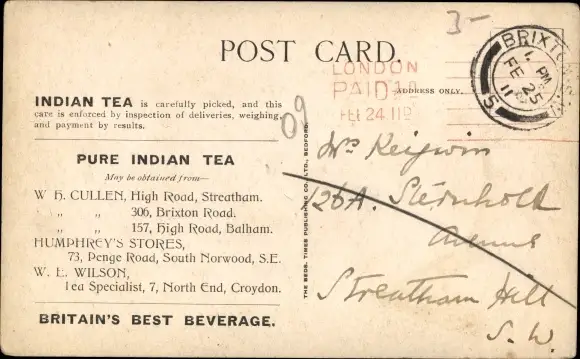 3-
POST CARD.
BRIXTON S.W.
PM
FE 25
11
S
LONDON
PAID
FEB 24 11
ADDRESS ONLY.
INDIAN TEA is carefully picked, and this
care is enforced by inspection of deliveries, weighing,
and payment by results.
09
PURE INDIAN TEA
May be obtained from—
W H. CULLEN, High Road, Streatham.
„ „ 306, Brixton Road.
„ „ 157, High Road, Balham.
HUMPHREY'S STORES,
73, Penge Road, South Norwood, S.E.
W. E. WILSON,
Tea Specialist, 7, North End, Croydon.
BRITAIN'S BEST BEVERAGE.
THE BEDS. TIMES PUBLISHING CO., LTD., BEDFORD.
Keigwin
126A. Sternhold
Avenue
Streatham Hill
S.W.